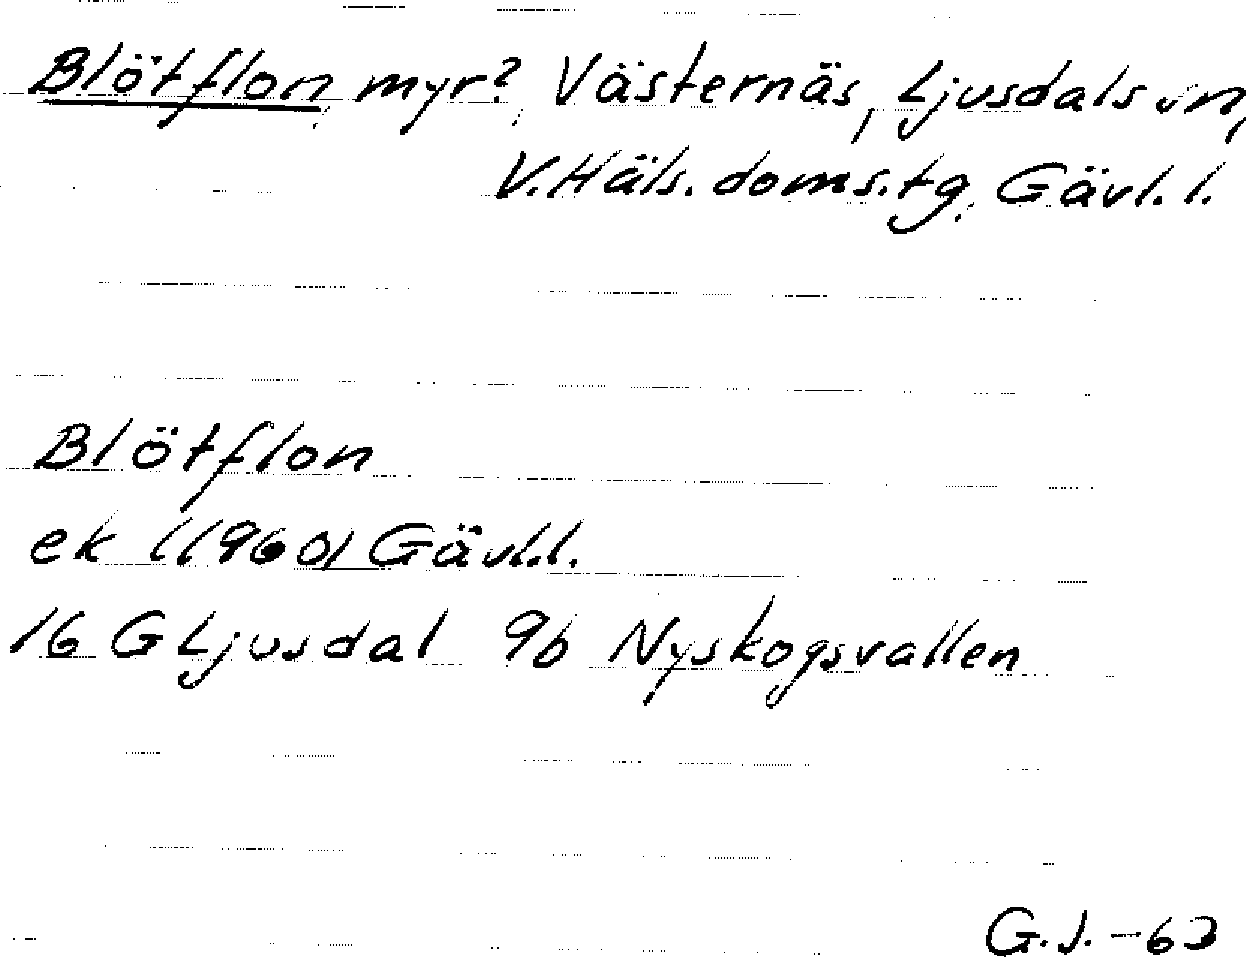 Blötflon, myr?, Västernäs, Ljusdals sn,
V. Häls. doms.tg, Gävl. l.
Blötflon
ek (1960) Gävl.l.
16 G Ljusdal 9b Nyskogsvallen
G.J. -62